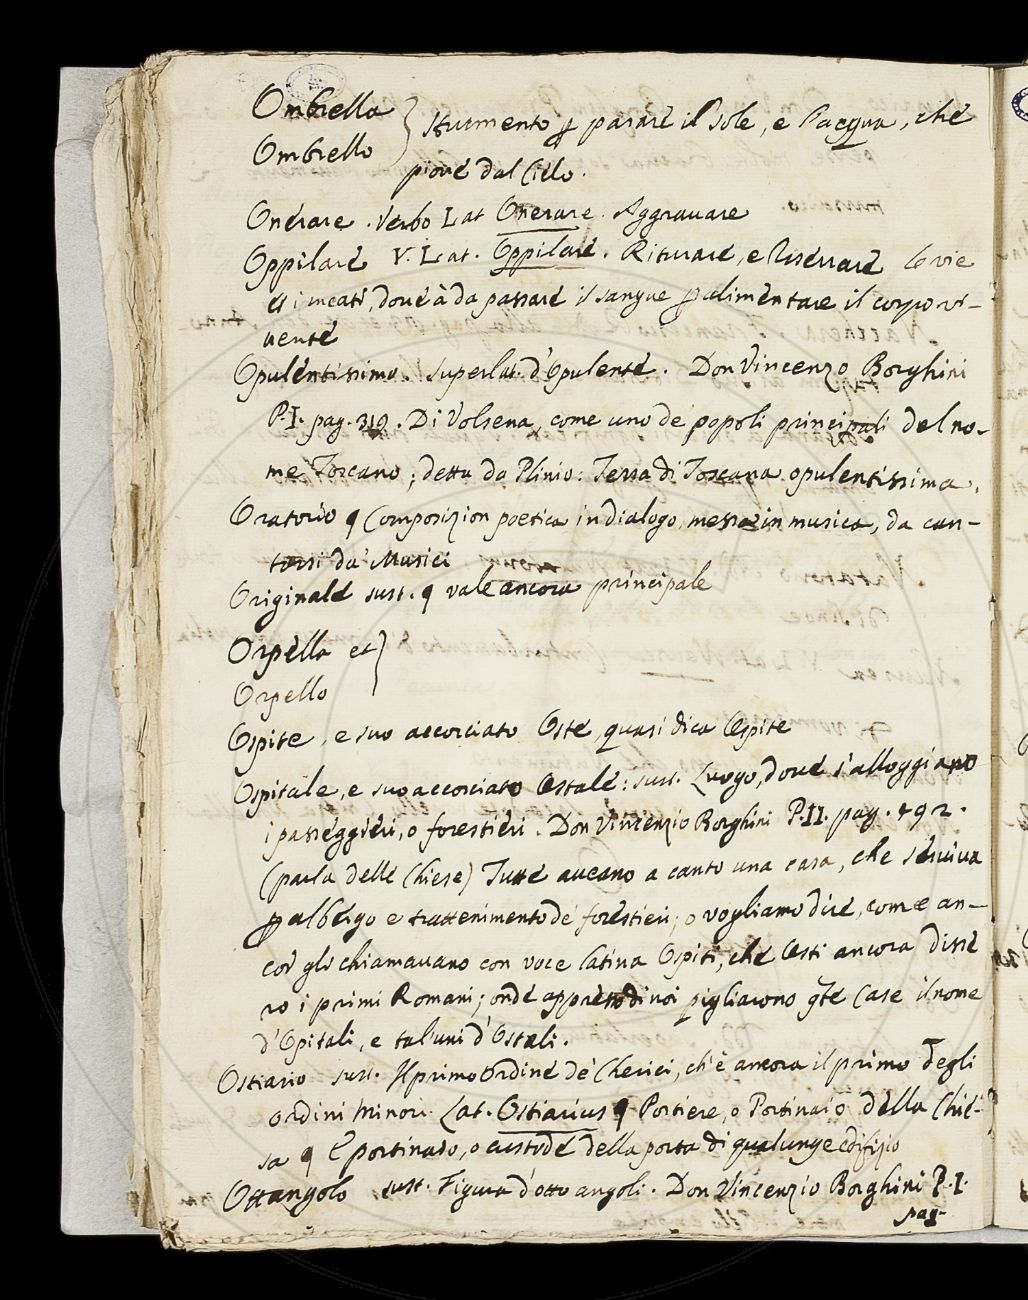 Ombrella
Ombrello } Strumento p parare il Sole, e l'acqua, che
piove dal Cielo.
Onerare. Verbo Lat Onerare. Aggravare
Oppilare V. Lat. Oppilare. Riturare, e riserrare le vie
et i meati, dove à da passare il sangue p alimentare il corpo vi-
vente
Opulentissimo. superlat. d'Opulente. Don Vincenzo Borghini
P.I. pag. 319. Di Volsena, come uno de' popoli principali del no-
me Toscano; detta da Plinio: Terra di Toscana opulentissima.
Oratorio q Composizion poetica in dialogo, messa in musica, da can-
tarsi da' Musici
Originale sust. q vale ancora principale
Orpella et }
Orpello
Ospite, e suo accorciato Oste, quasi dica Ospite
Ospitale, e suo accorciato Ostale: sust. Luogo, dove s'alloggiano
i passeggieri, o forestieri. Don Vincenzio Borghini P.II. pag. 492.
(parla delle Chiese) Tutte aveano a canto una casa, che serviva
p albergo e trattenimento de' forestieri; o vogliamo dire, come an-
cor gli chiamavano con voce latina Ospiti, che Osti ancora disse
ro i primi Romani; onde appresso di noi pigliarono qste Case il nome
d'Spitali, e taluni d'Ostali.
Ostiario sust. Il primo Ordine de' Cherici, ch'è ancora il primo degli
ordini Minori. Lat. Ostiarius q Portiere, o Portinaio della Chie-
sa q E portinaio, o custode della porta di qualunque edifizio
Ottangolo sust. Figura d'otto angoli. Don Vincenzio Borghini P.I.
pag.